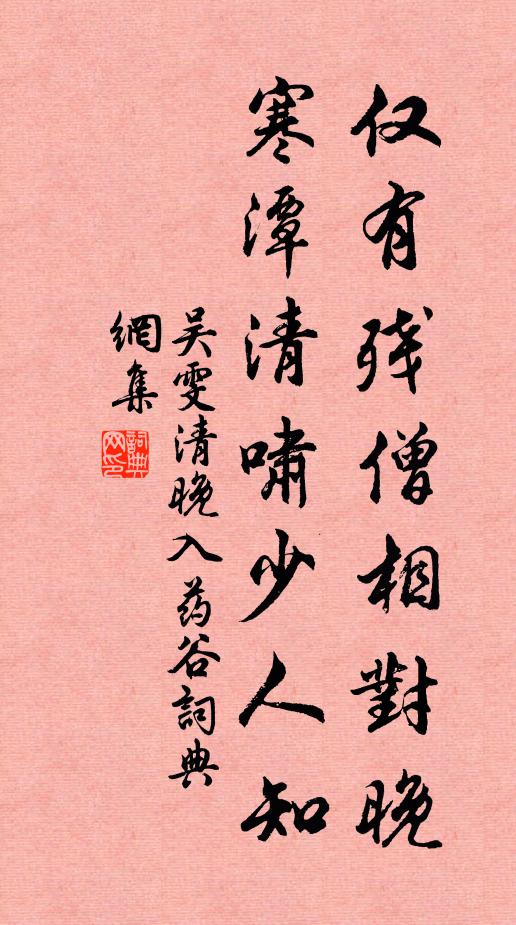 仅有残僧相對晚
寒潭清嘯少人知
吴雯清晚入药谷詞典
網集
詞典网印